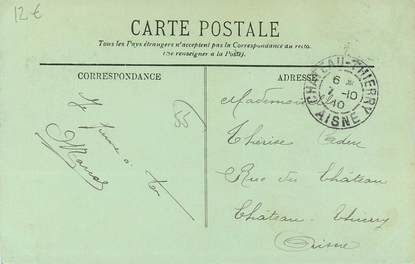 12 €
CARTE POSTALE
Tous les Pays étrangers n'acceptent pas la Correspondance au recto.
(Se renseigner à la Poste).
CORRESPONDANCE
ADRESSE
CHATEAU-THIERRY
6
7-10
10
AISNE
Mademoiselle
Thérèse
Rue du Château
Château-Thierry
Aisne
Je pense à toi
55